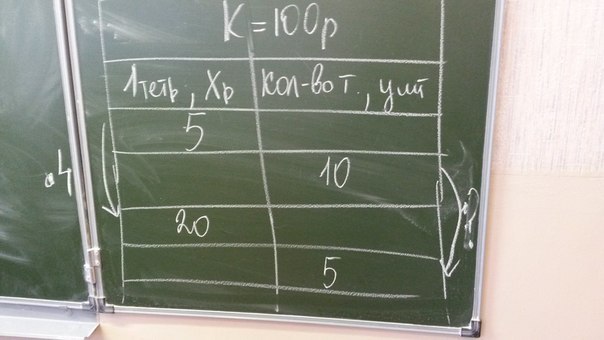 К = 100р
1 тетр, Хр Кол-во т., у шт
5
10
20
5